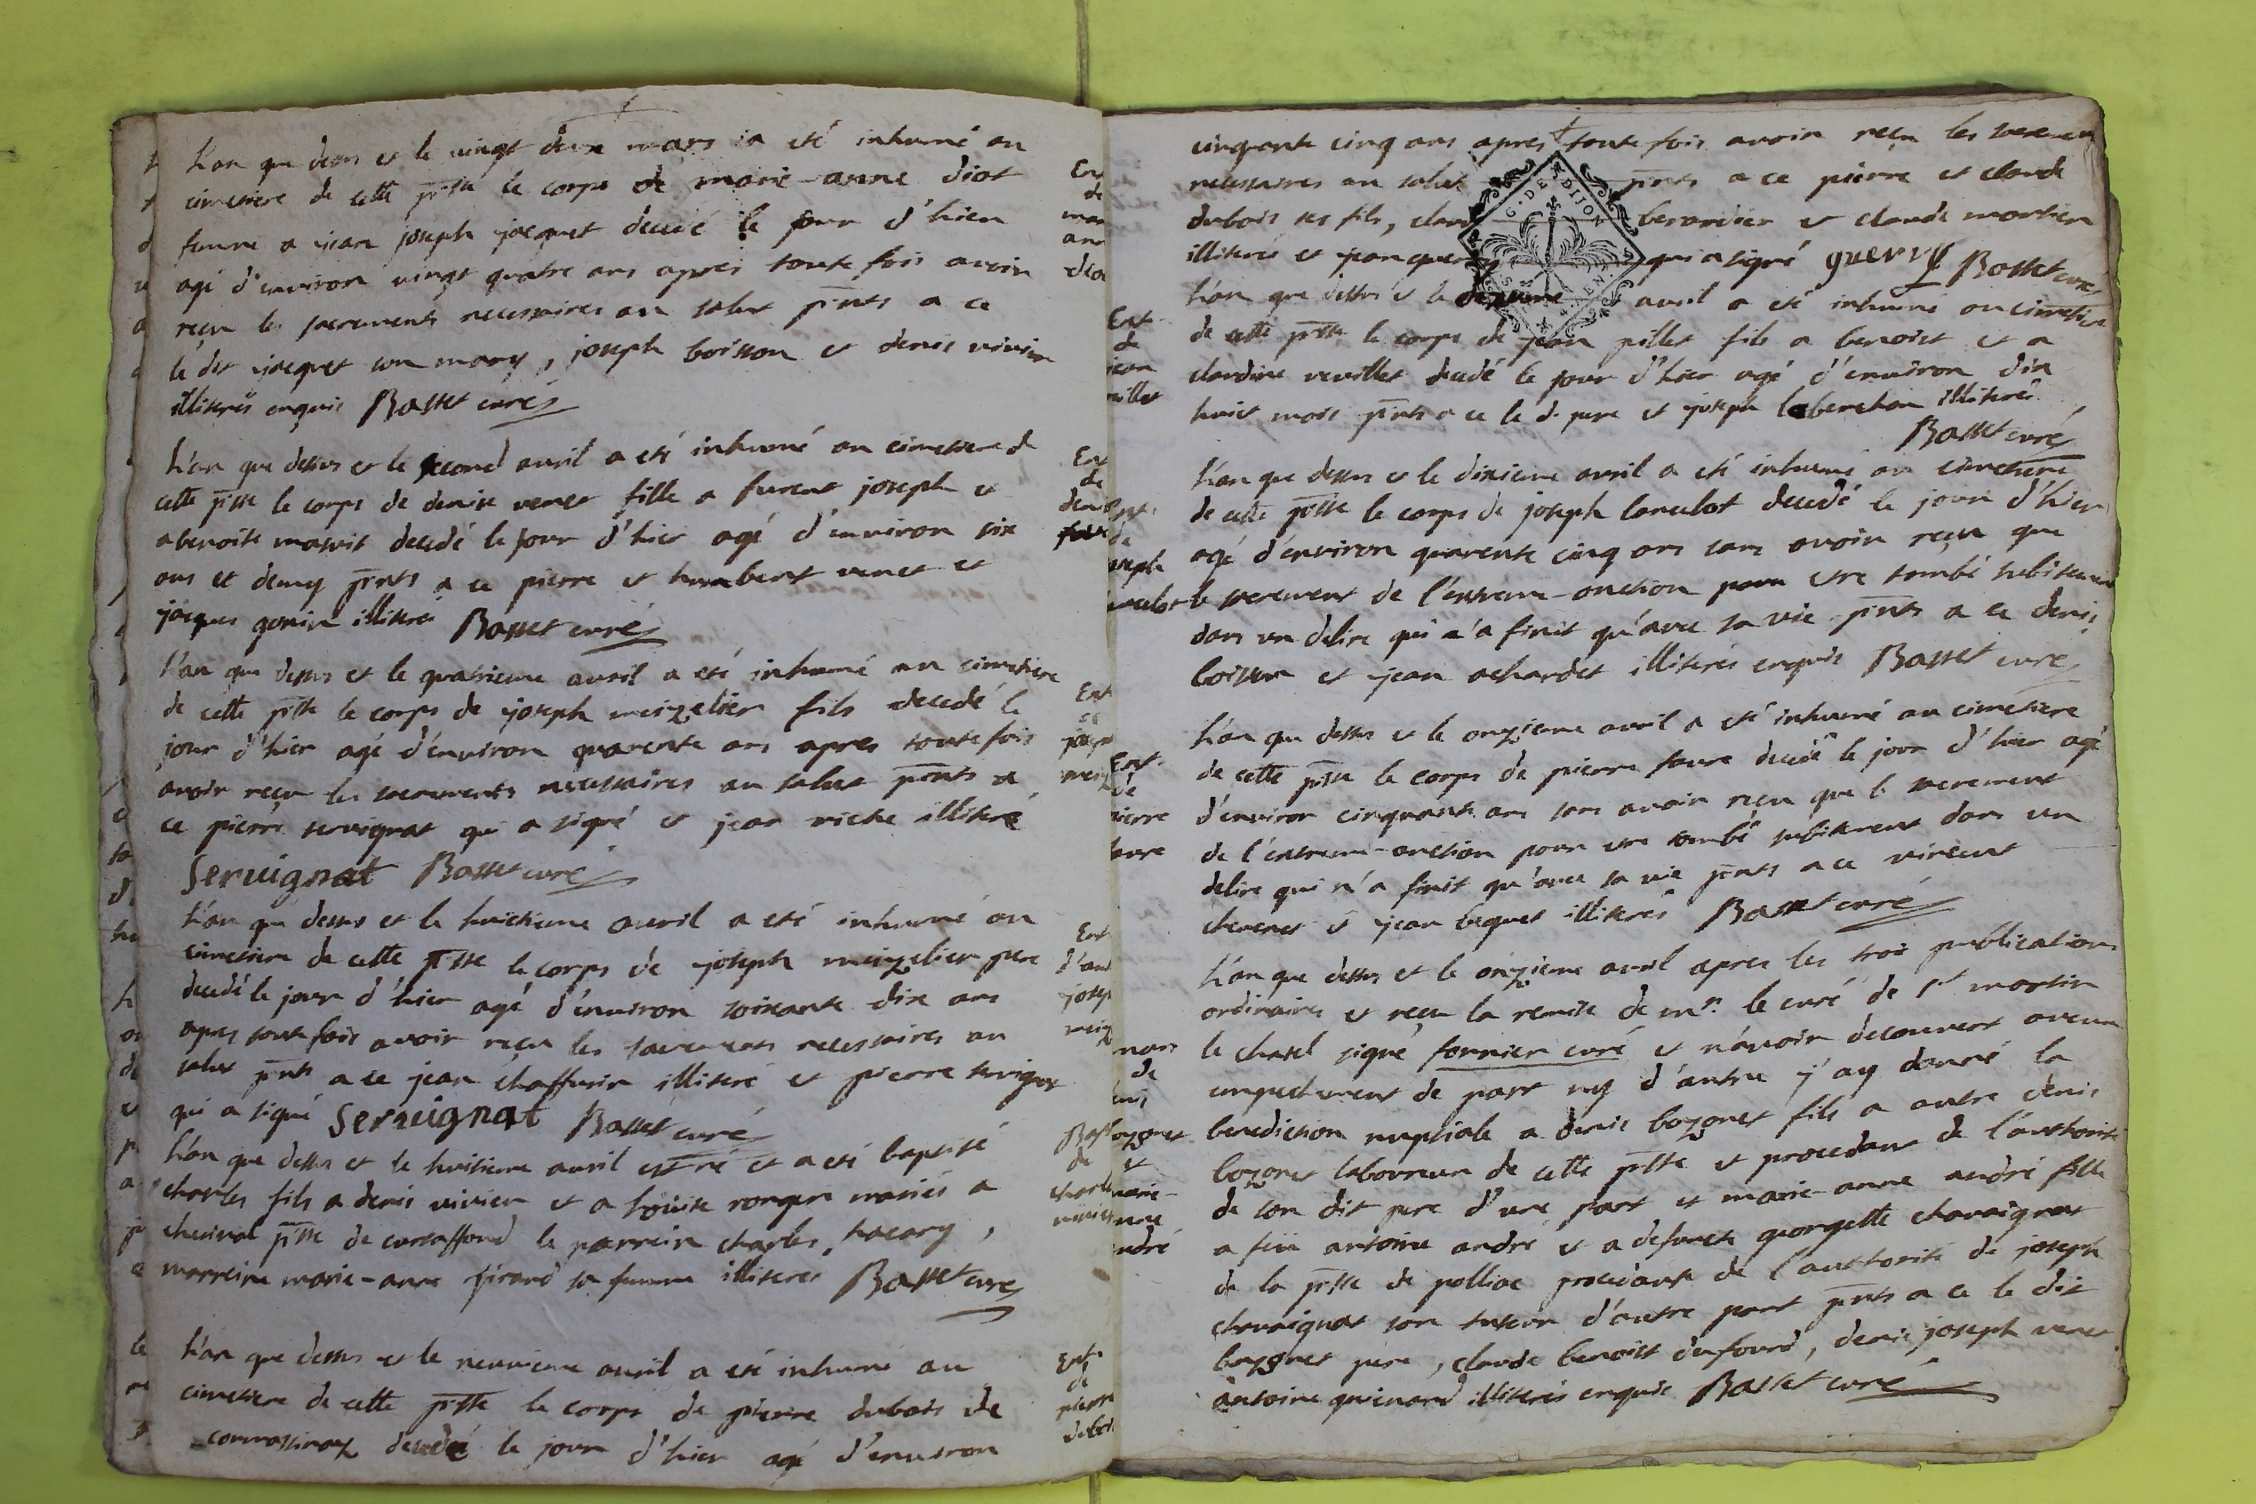 L'an que dessus et le vingt deux mars a eté inhumé au
cimetiere de cette psse le corps de marie-anne diot
femme a jean joseph jacquet decedé le jour d'hier
agé d'environ vingt quatre ans apres toute fois avoir
reçu les sacrements necessaires au salut pnts a ce
le dit jacquet son mary, joseph boisson et denis vivier
illiterés enquis Basset curé
L'an que dessus et le second avril a eté inhumé au cimetiere de
cette psse le corps de denise venet fille a furent joseph et
a benoite decedé le jour d'hier agé d'environ six
ans et demy pnts a ce pierre et humbert venet et
jacques gonin illiteré Basset curé
L'an que dessus et le quatrieme avril a eté inhumé au cimetiere
de cette psse le corps de joseph meizelier fils decedé le
jour d'hier agé d'environ quarente ans apres toute fois
avoir reçu les sacrements necessaires au salut pnts a
ce pierre servignat qui a signé et jean riche illiteré
Servignat Basset curé
L'an que dessus et le huictieme avril a eté inhumé au
cimetiere de cette psse le corps de joseph meizelier pere
decedé le jour d'hier agé d'environ soixante dix ans
apres toute fois avoir reçu les sacrements necessaires au
salut pnts a ce jean chaffurin illiteré et pierre servignat
qui a signé Servignat Basset curé
L'an que dessus et le huitieme avril est né et a eté baptisé
charles fils a denis vivier et a louise ronger mariés a
psse de curtaffond le parrein charles hacary,
marreine marie-anne sa femme illiteres Basset curé
L'an que dessus et le neuvieme avril a eté inhumé au
cimetiere de cette psse le corps de pierre dubois de
decedé le jour d'hier agé d'environ
Ent
de
mar
ann
dio
Ent
de
deni
Ent
de
joseph
meiz
Ent
joseph
meiz
Bapt
de
charle
vivier
Ent
de
pierre
dubois
cinquante cinq ans apres toute fois avoir reçu les sacrements
necessaires au salut pnts a ce pierre et claude
dubois ses fils, claude berardier et claude mortier
illiterés et jean guerry qui a signé guerry Basset curé
G. DE DIJON
L'an que dessus et le avril a eté inhumé au cimetiere
de cette psse le corps de jean pillet fils a benoist et a
claudine veuillet decedé le jour d'hier agé d'environ dix
huict mois pnts a ce le d. pere et joseph laberchon illiterés
Basset curé
L'an que dessus et le dixieme avril a eté inhumé au cimetiere
de cette psse le corps de joseph lanculot decedé le jour d'hier
agé d'environ quarente cinq ans sans avoir reçu que
le sacrement de l'extreme-onction pour etre tombé subitement
dans un delire qui n'a finit qu'avec sa vie pnts a ce denis
boisson et jean achardet illiterés enquis Basset curé
L'an que dessus et le onzieme avril a eté inhumé au cimetiere
de cette psse le corps de pierre favre decedé le jour d'hier agé
d'environ cinquante ans sans avoir reçu que le sacrement
de l'extreme-onction pour etre tombé subitement dans un
delire qui n'a finit qu'avec sa vie pnts a ce vincent
chevenet et jean bequet illiterés Basset curé
L'an que dessus et le onzieme avril apres les trois publications
ordinaires et reçu la remise de mr. le curé de st martin
le chatel signé fornier curé et n'avoir decouvert aucun
empechement de part ny d'autre j'ay donné la
benediction nuptiale a denis bozonet fils a autre denis
bozonet laboureur de cette psse et procedant de l'authorité
de son dit pere d'une part et marie-anne andré fille
a feu antoine andré et a defuncte georgette chavaignat
de la psse de polliac procedante de l'authorité de joseph
chavaignat son tuteur d'autre part pnts a ce le dit
bozonet pere, claude benoist dufourd, denis joseph venet
antoine guinard illiterés enquis Basset curé
Ent
de
jean
pillet
Ent
de
joseph
lanculot
Ent
de
pierre
favre
mari
de
denis
bozonet
et
marie-
anne
andré